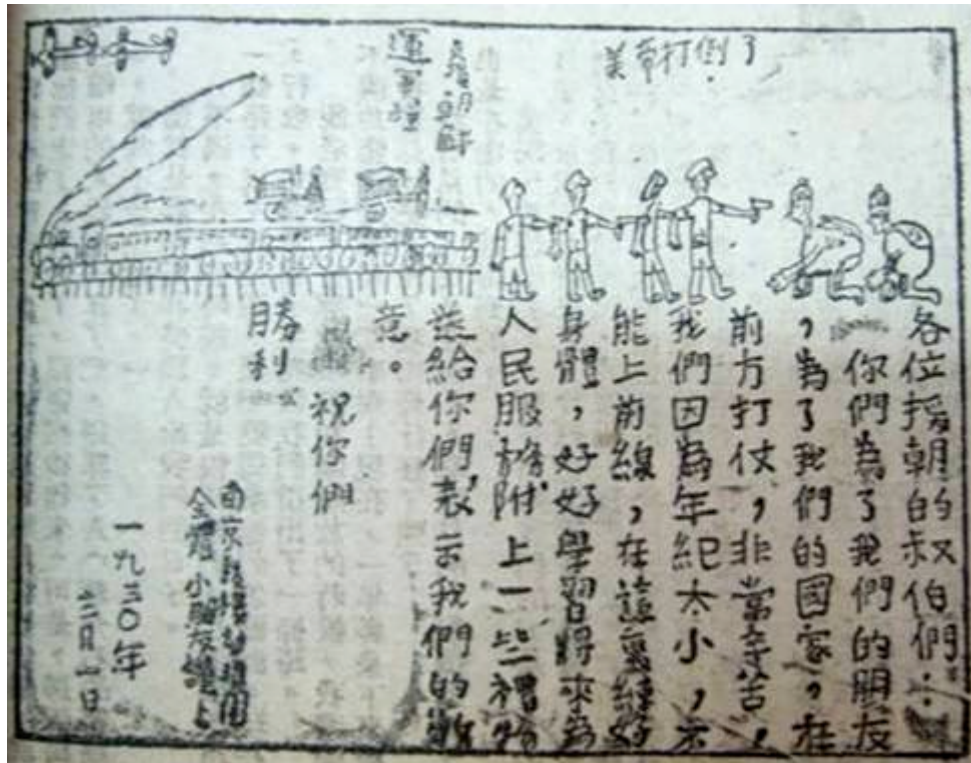 美帝打倒了
朝鮮
運軍糧
各位援朝的叔伯們：
你們為了我們的朋友
，為了我們的國家，在
前方打仗，非常辛苦，
我們因為年紀太小，不
能上前線，在這裏練好
身體，好好學習將來為
人民服務附上一些禮物
送給你們，表示我們的敬
意。
祝你們
勝利
南京鼓樓幼稚園
全體小朋友上
一九五〇年
月一日